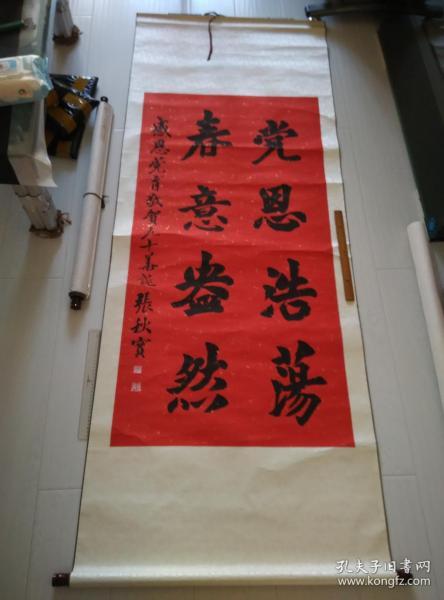 党恩浩荡
春意盎然
感恩党育敬贺九十华诞 張秋實
孔夫子旧书网
www.kongfz.com